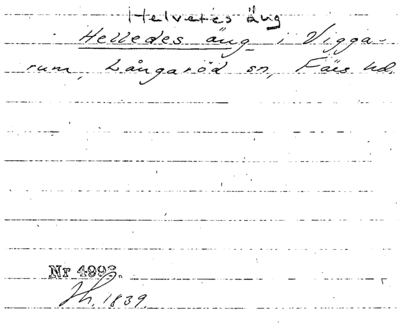 Helvetes äng
Helledes äng i Vigga-
rum, Långaröd sn, Färs hd.
Nr 4993.
Th. 1839